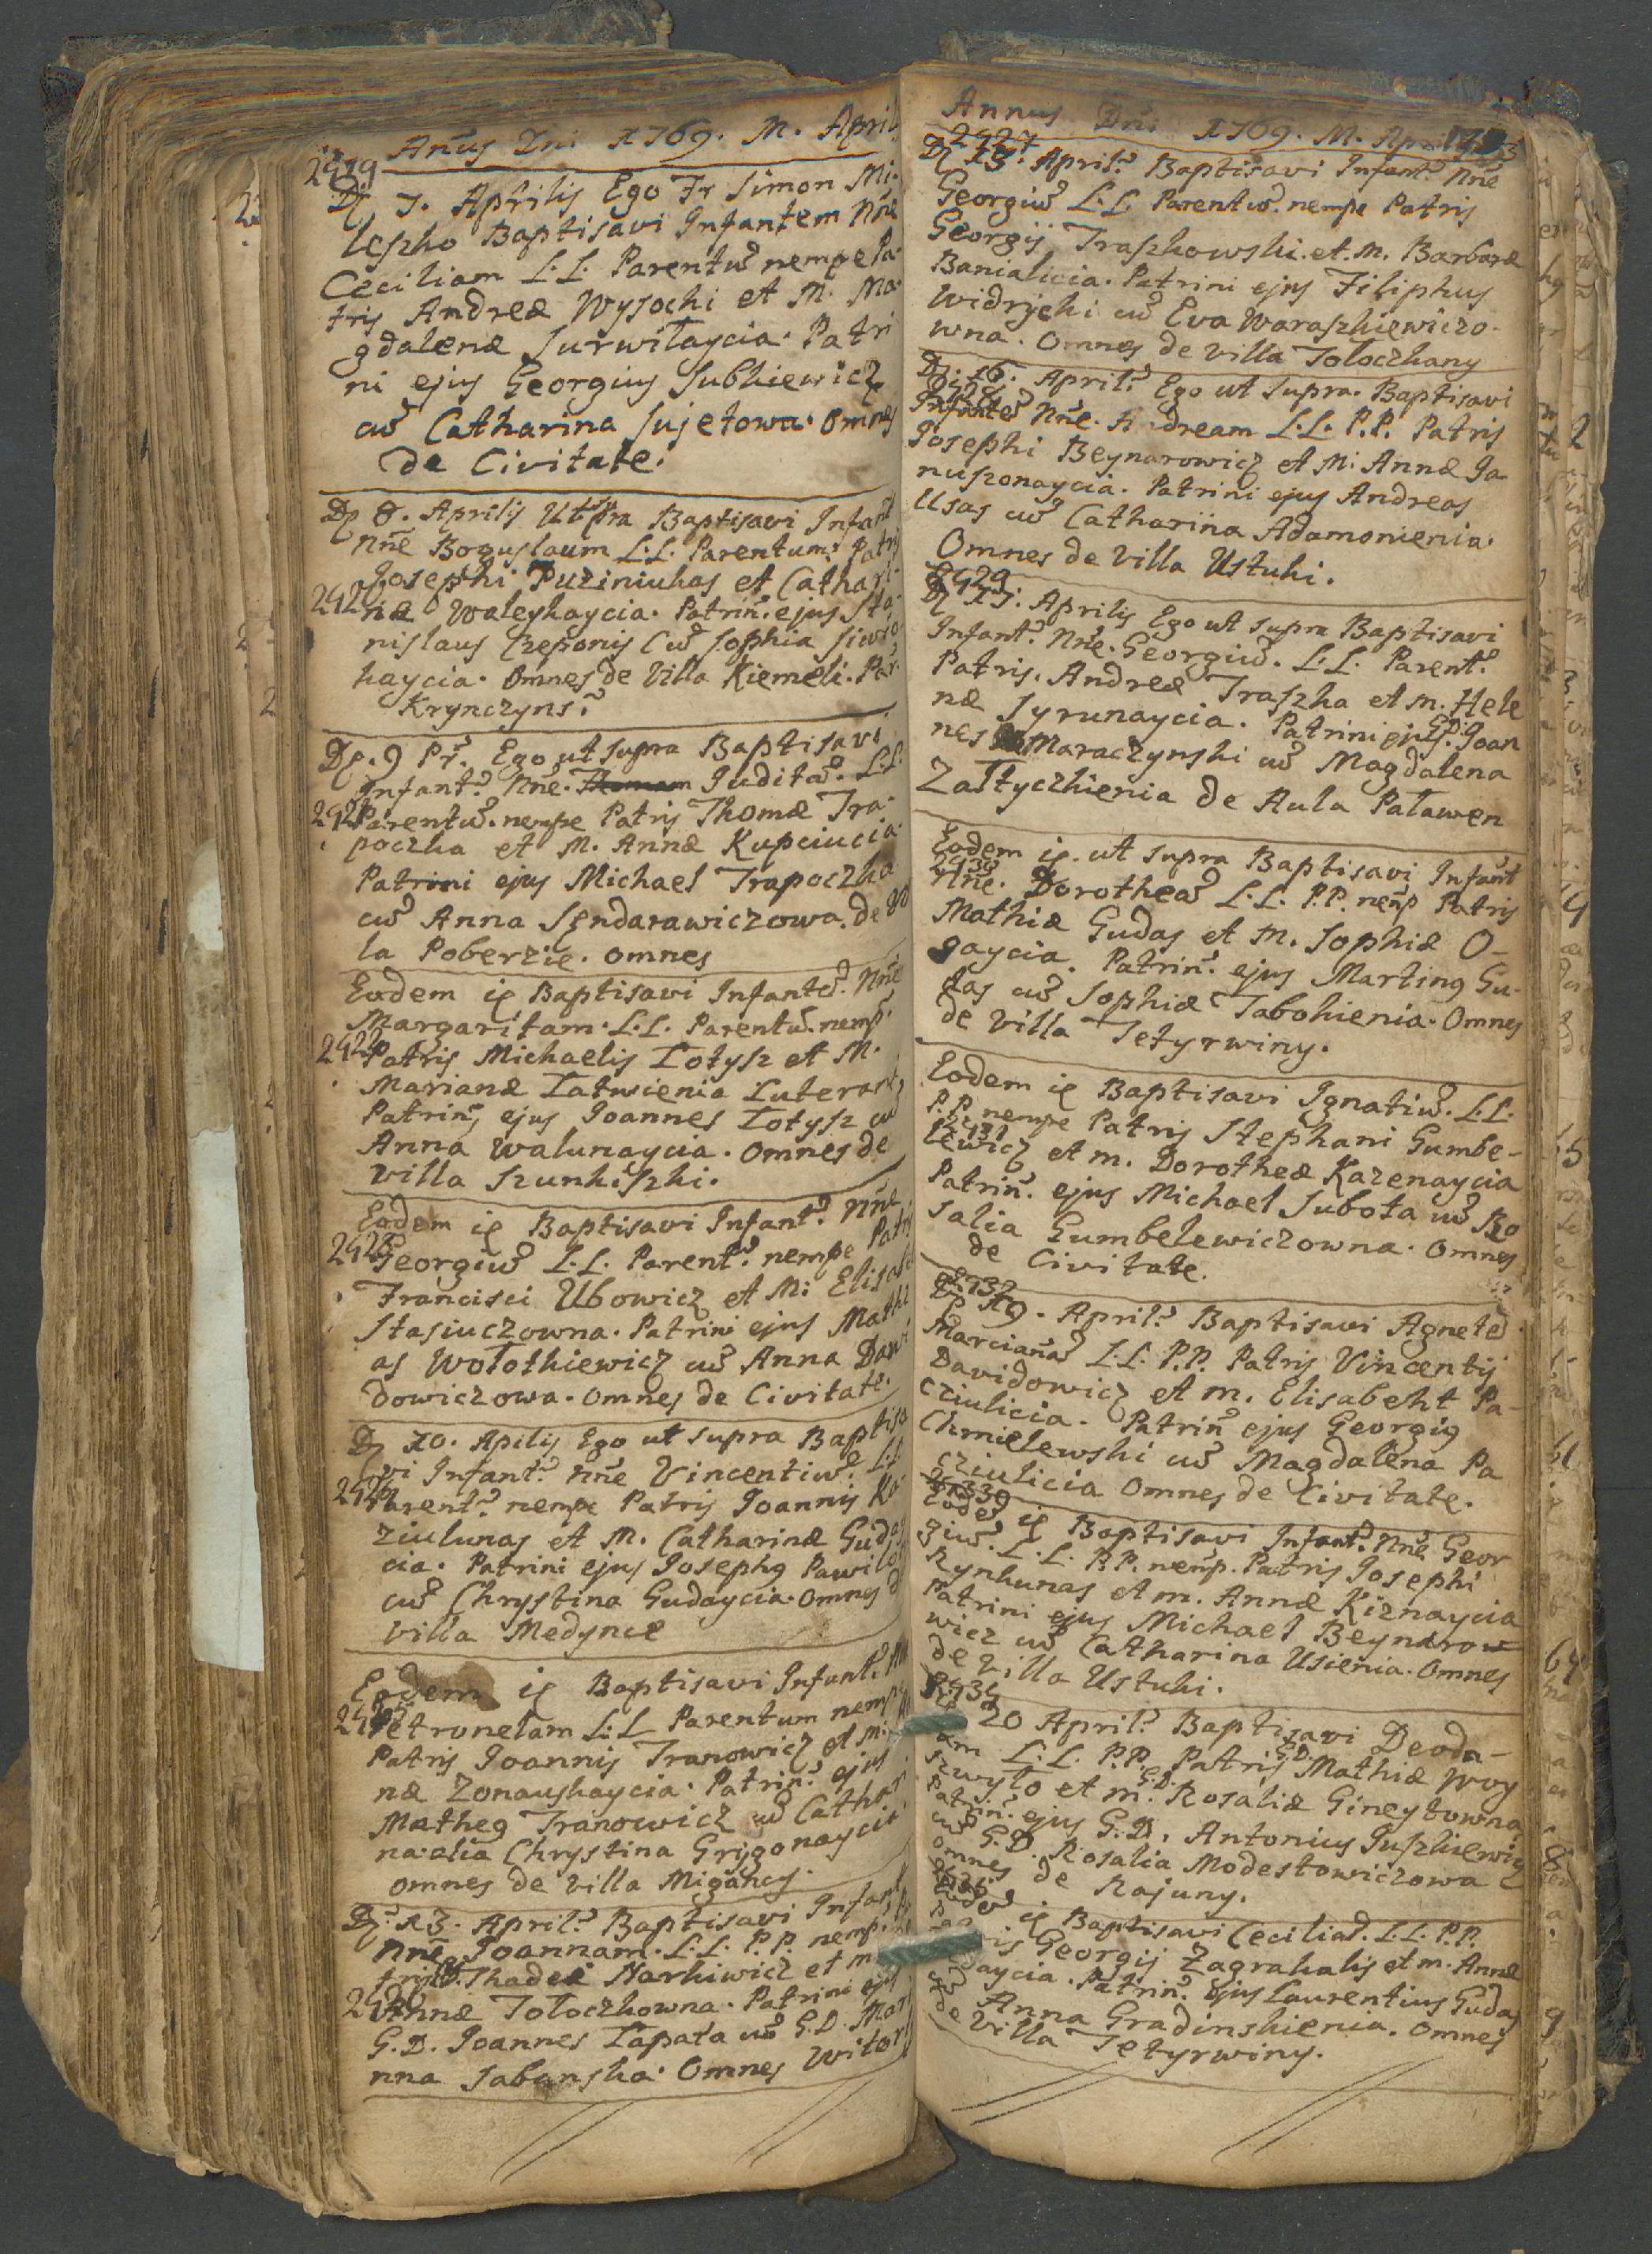 Anus Dni 1769. M. April
2419
D 7. Aprilis Ego Fr Simon Mi-
leszko Baptisavi Infantem Nne
Ceciliam L.L. Parentu nempe Pa-
tris Andreæ Wysocki et M. Ma-
gdalenæ Surwiłaycia. Patri
ni ejus Georgius Subkiewicz
cu Catharina Sujetowa. Omnes
de Civitate.
D 8. Aprilis Ut Supra Baptisavi Infant
Nne Boguslaum L.L. Parentum Patris
Josephi Puziniukas et Cathari-
2420
næ Waleykaycia. Patrin. ejus Sta-
nislaus Czeponis Cu Sophia
kaycia. Omnes de Villa Kiemeli. Par.
Krynczyns.
D. 9 Pr. Ego ut supra Baptisavi
Infant. Nne. Judita. L.L.
2421
Parentu. nempe Patris Thomæ Tra-
poczka et M. Annæ Kupciucia.
Patrini ejus Michael Trapoczka
cu Anna Sendarawiczowa. de Vil
la Poberzie. omnes
Eodem ie Baptisavi Infante. Nne
Margaritam. L.L. Parentu. nemp.
2422
Patris Michaelis Łotysz et M.
Marianæ Łatwienia Luterant
Patrin. ejus Joannes Łotysz cu
Anna Walunaycia. Omnes de
Villa Szunkiszki.
Eodem ie Baptisavi Infant. Nne
2423
Georgiu L.L. Parent. nempe Patris
Francisci Ubowicz et M: Elisabe
Stasiuczowna. Patrini ejus Mathi
as Wołotkiewicz cu Anna Dawi
dowiczowa. Omnes de Civitate.
D 10. Apilis Ego ut supra Baptisa
vi Infant. Nne Vincentiu. L.L.
2424
Parent. nempe Patris Joannis Ka
ziulunas et M. Catharinæ Gudaj
cia. Patrini ejus Josephg Pawiłoy
cu Chrystina Gudaycia. Omnes d
villa Medynce
Eodem ie Baptisavi Infant. Nn
2425
Petronelam L.L Parentum nempe
Patris Joannis Iranowicz et M:
næ Zonauskaycia. Patrin. ejus
Matheg Iranowicz cu Cathari
na. alia Chrystina Grygonaycia
omnes de villa Migance.
D. 13. April. Baptisavi Infant
Nne Joannam. L.L. P.P. nemp.
tris G.D. Thadei Narkiwicz et m
2426
Annæ Tołoczkowna. Patrini ejus
G.D. Joannes Łapata cu G.D. Mar
nna Sabanska. Omnes Witor
Annus Dni 1769. M. Apr
2427
D 15. April. Baptisavi Infant. Nne
Georgiu L.L. Parentu. nempe Patris
Georgij Traszkowski. et. M. Barbaræ
Banialicia. Patrini ejus Filiphus
Widrycki cu Eva Waraszkiewiczo-
wna. Omnes de villa Tołoczkany
D. 16. April. Ego ut supra. Baptisavi
2428
Infante Nne. Andream L.L. P.P. Patris
Josephi Beynarowicz et M: Annæ Ja
nuszonaycia. Patrini ejus Andreas
Usas cu Catharina Adamonienia.
Omnes de villa Ustuki.
2429
D 17. Aprilis Ego ut supra Baptisavi
Infant. Nne. Georgiu. L.L. Parent.
Patris. Andreæ Traszka et m. Hele
næ Syrunaycia. Patrini ejus G.D. Joan
nes Maraczynski cu Magdalena
Załtyczkienia de Aula Paławen
Eodem ie. ut supra Baptisavi Infant
2430
Nne. Dorothea L.L. P.P. nemp Patris
Mathiæ Gudas et M. Sophiæ O-
gaycia. Patrin. ejus Marting Gu-
das cu Sophiæ Tabokienia. Omnes
de villa Tetyrwiny.
Eodem ie Baptisavi Ignatiu. L.L.
P.P. nempe Patris Stephani Gumbe-
2431
lewicz et m. Dorotheæ Kazenaycia
Patrin. ejus Michael Subota cu Ro
salia Gumbelewiczowna. Omnes
de Civitate.
2432
D 19. April. Baptisavi Agnete
Marciana L.L. P.P. Patris Vincentij
Davidowicz et m. Elisabeht Pa-
cziulicia. Patrin ejus Georgig
Chmielewski cu Magdalena Pa
cziulicia Omnes de Civitate.
2433
Eode ie Baptisavi Infant. Nne Geor
giu. L.L. P.P. nemp. Patris Josephi
Rynkunas et m. Annæ Kiznaycia
Patrini ejus Michael Beynarow
wicz cu Catharina Usienia. Omnes
de villa Ustuki.
2434
20 April. Baptisavi Deoda-
tam L.L. P.P. Patris G.D. Mathiæ Woy
szwyło et m. G.D. Rosaliæ Gineytowna
Patrin. ejus G.D. Antonius Juszkiewicz
cu G.D. Rosalia Modestowiczowa
omnes de Rajuny.
2435
Eode ie Baptisavi Cecilia. L.L. P.P.
Patris Georgij Zagrakalis et m. Annæ
daycia. Patrin. ejus Laurentius Gudas
Anna Gradinskienia. Omnes
de villa Tetyrwiny.